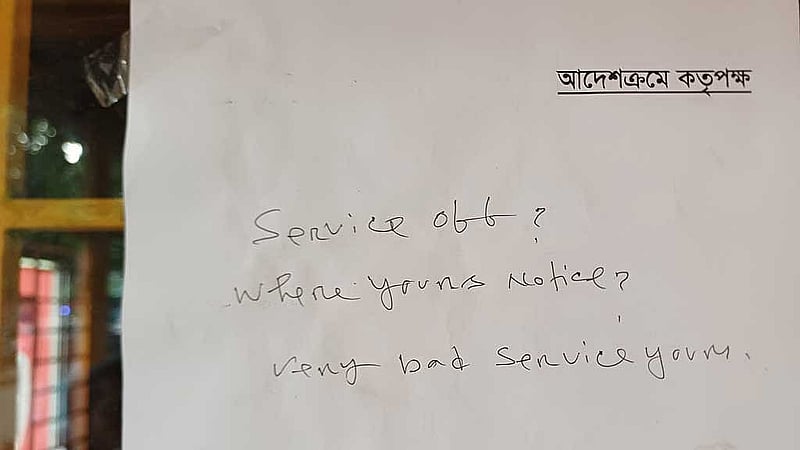 আদেশক্রমে কতৃপক্ষ
Service off?
Where yours Notice?
very bad service yours.